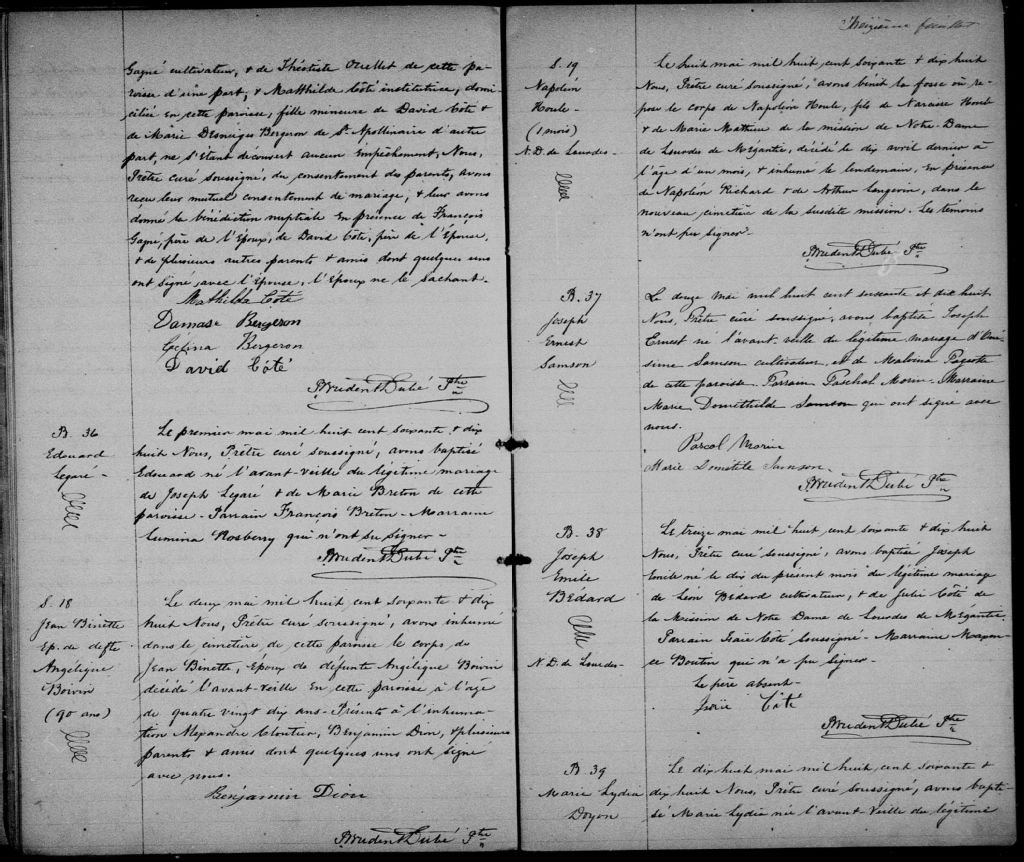 Gagné cultivateur, & de Théotiste Ouellet de cette pa-
roisse d'une part, & Mathilde Côté institutrice, domi
ciliée en cette paroisse, fille mineure de David Côté &
de Marie Desneiges Bergeron de St. Apollinaire d'autre
part, ne s'étant découvert aucun Empêchement, Nous,
Prêtre curé soussigné, du consentement des parents, avons
reçu leur mutuel consentement de mariage, & leur avons
donné la bénédiction nuptiale En présence de François
Gagné, père de l'Epoux, de David Côté, père de l'Epouse,
& de plusieurs autres parents & amis dont quelques uns
ont signé avec l'Epouse, l'Epoux ne le sachant.
Mathilda Côté
Damase Bergeron
Celina Bergeron
David Côté
Prudent Dubé Ptre
B. 36
Edouard
Legaré
Le premier mai mil huit cent soixante & dix
huit Nous, Prêtre curé soussigné, avons baptisé
Edouard né l'avant-veille du légitime mariage
de Joseph Legaré & de Marie Breton de cette
paroisse - Parrain François Breton - Marraine
Lumina Rosberry qui n'ont su signer -
Prudent Dubé Ptre
S. 18
Jean Binette
Ep. de defte
Angélique
Boivin
(90 ans)
Le deux mai mil huit cent soixante & dix
huit Nous, Prêtre curé soussigné, avons inhumé
dans le cimetière de cette paroisse le corps de
Jean Binette, Epoux de défunte Angélique Boivin
décédé l'avant-veille En cette paroisse à l'age
de quatre vingt dix ans - Présents à l'inhuma-
tion Alexandre Cloutier, Benjamin Dion, & plusieurs
parents & amis dont quelques uns ont signé
avec nous.
Benjamin Dion
Prudent Dubé Ptre
Treizième feuillet
S. 19
Napoléon
Houle
(1 mois)
N. D. de Lourdes -
Le huit mai mil huit cent soixante & dix huit
Nous, Prêtre curé soussigné, avons bénit la fosse où re
pose le corps de Napoléon Houle, fils de Narcisse Houle
& de Marie Mathieu de la mission de Notre-Dame
de Lourdes de Mégantic, décédé le dix avril dernier à
l'age d'un mois, & inhumé le lendemain, En présence
de Napoléon Richard & de Arthur Langevin, dans le
nouveau cimetière de la susdite mission. Les témoins
n'ont pu signer -
Prudent Dubé Ptre
B. 37
Joseph
Ernest
Samson
Le douze mai mil huit cent soixante et dix huit
Nous, Prêtre curé soussigné, avons baptisé Joseph
Ernest né l'avant veille du légitime mariage d'Oné
sime Samson cultivateur et de Malvina Pageote
de cette paroisse Parrain Paschal Morin - Marraine
Marie Domithilde Samson qui ont signé avec
nous.
Pascal Morin
Marie Domitile Samson
Prudent Dubé Ptre
B. 38
Joseph
Emile
Bédard
N. D. de Lourdes -
Le treize mai mil huit cent soixante & dix huit
Nous, Prêtre curé soussigné, avons baptisé Joseph
Emile né le dix du présent mois du légitime mariage
de Léon Bédard cultivateur, & de Julie Côté de
la Mission de Notre Dame de Lourdes de Mégantic.
Parrain Isaïe Côté soussigné - Marraine
Boutin qui n'a pu signer -
Le père absent -
Isaïe Côté
Prudent Dubé Ptre
B. 39
Marie Lydia
Doyon
Le dix huit mai mil huit cent soixante &
dix huit Nous, Prêtre curé soussigné, avons bapti-
sé Marie Lydia née l'avant-veille du légitime